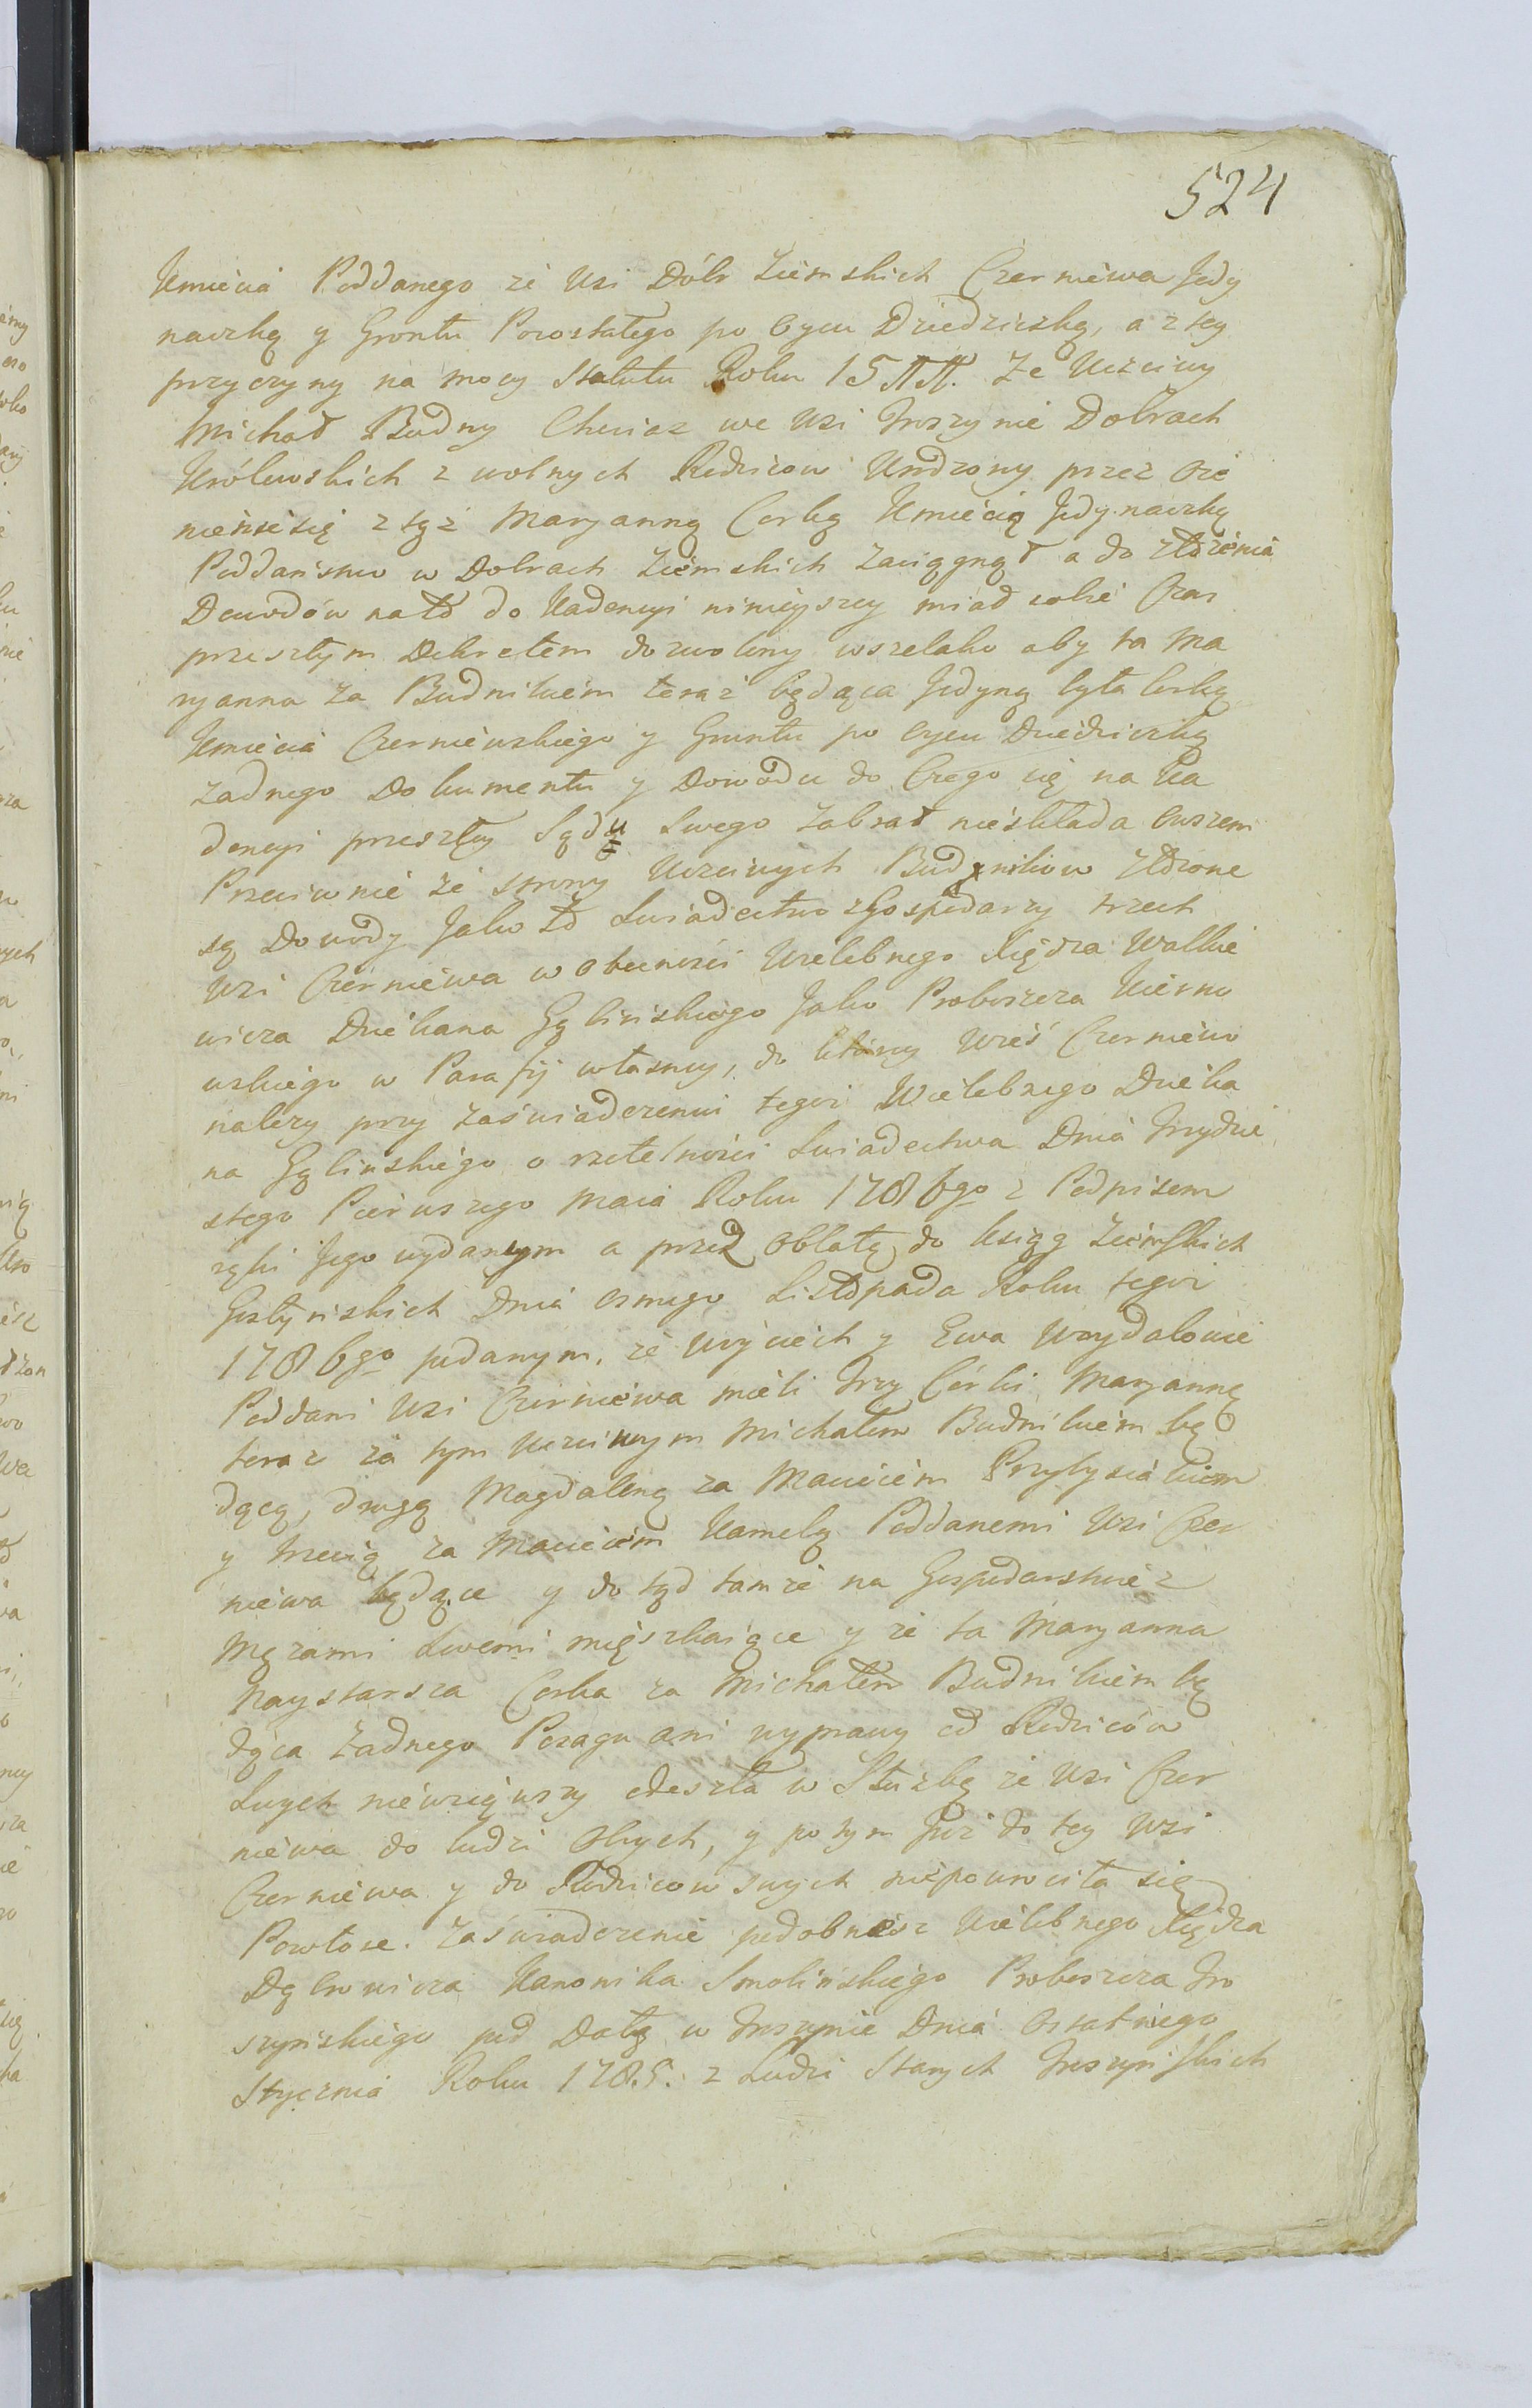 524
Kmiecia Poddanego zé Wsi Dóbr Ziemskich Czerniewa Jedy
naczkę y Gruntu Pozostałego po Oycu Dziedziczkę, a z tey
przyczyny na mocy Statutu Roku 15 Ze Uczciwy
Michał Budny Chociaz we Wsi Troszynie Dobrach
Królewskich z wolnych Rodzicow Urodzony przez Oze
nienie się z tąż Maryanną Corką Kmiecią Jedynaczką
Poddaństwo w Dobrach Ziemskich zaciągnął a do złożenia
Dowodów na to do Kadencyi ninieyszey miał sobie Czas
przeszłym Dekretem dozwolony wszelako aby ta Ma
ryanna za Budnikiem teraz będąca Jedyną była Corką
Kmiecia Czerniewskiego y Gruntu po Oycu Dziedziczką
żadnego Dokumentu y Dowodu do Czego się na Ka
dencyi przeszłey Sądu Swego zabrał nieskłada owszem
Przeciwnie ze strony Uczciwych Budników złozone
są Dowody Jako to Swiadectwo z Gospodarzy trzech
Wsi Czerniewa w obecności Wielebnego Xiędza Walkie
wicza Dziekana Gąbińskiego Jako Proboszcza Kierno
wskiego w Parafij własney, do którey Wieś Czerniewo
nalezy przy zaświadczeniu tegoż Wielebnego Dzieka
na Gąbinskiego o rzetelności Swiadectwa Dnia Trzydzie
stego Pierwszego Maia Roku 1786go z Podpisem
ręki Jego wydanym a przez Oblatę do Ksiąg Ziemskich
Gostynskich Dnia osmego Listopada Roku tegoż
1786go podanym, że Woyciech y Ewa Wrzydalowie
Poddani Wsi Czerniewa mieli Trzy Córki, Maryannę
teraz za tym Uczciwym Michałem Budnikiem bę
dącą, drugą Magdalenę za Maciéiem Przybysiakiem
y trzecią za Maciéiem Kamelą Poddanemi Wsi Czer
niewa będące y do tąd tamże na Gospodarstwie z
Mężami Swemi mieszkaiące y że ta Maryanna
Naystarsza Corka za Michałem Budnikiem bę
dąca żadnego Posagu ani wyprawy od Rodziców
Swych niewziąwszy odeszła w Służbę ze Wsi Czer
niewa do ludzi Obcych, y potym Już do tey Wsi
Czerniewa y do Rodzicow swych niepowrociła się
Powtore. Zaświadczenie podobnież Wielebnego Xiędza
Dąbrowicza Kanonika Smolińskiego Proboszcza Tro
szyńskiego pod Datą w Troszynie Dnia Ostatniego
Stycznia Roku 1785. z Ludzi Starych Troszyńskich